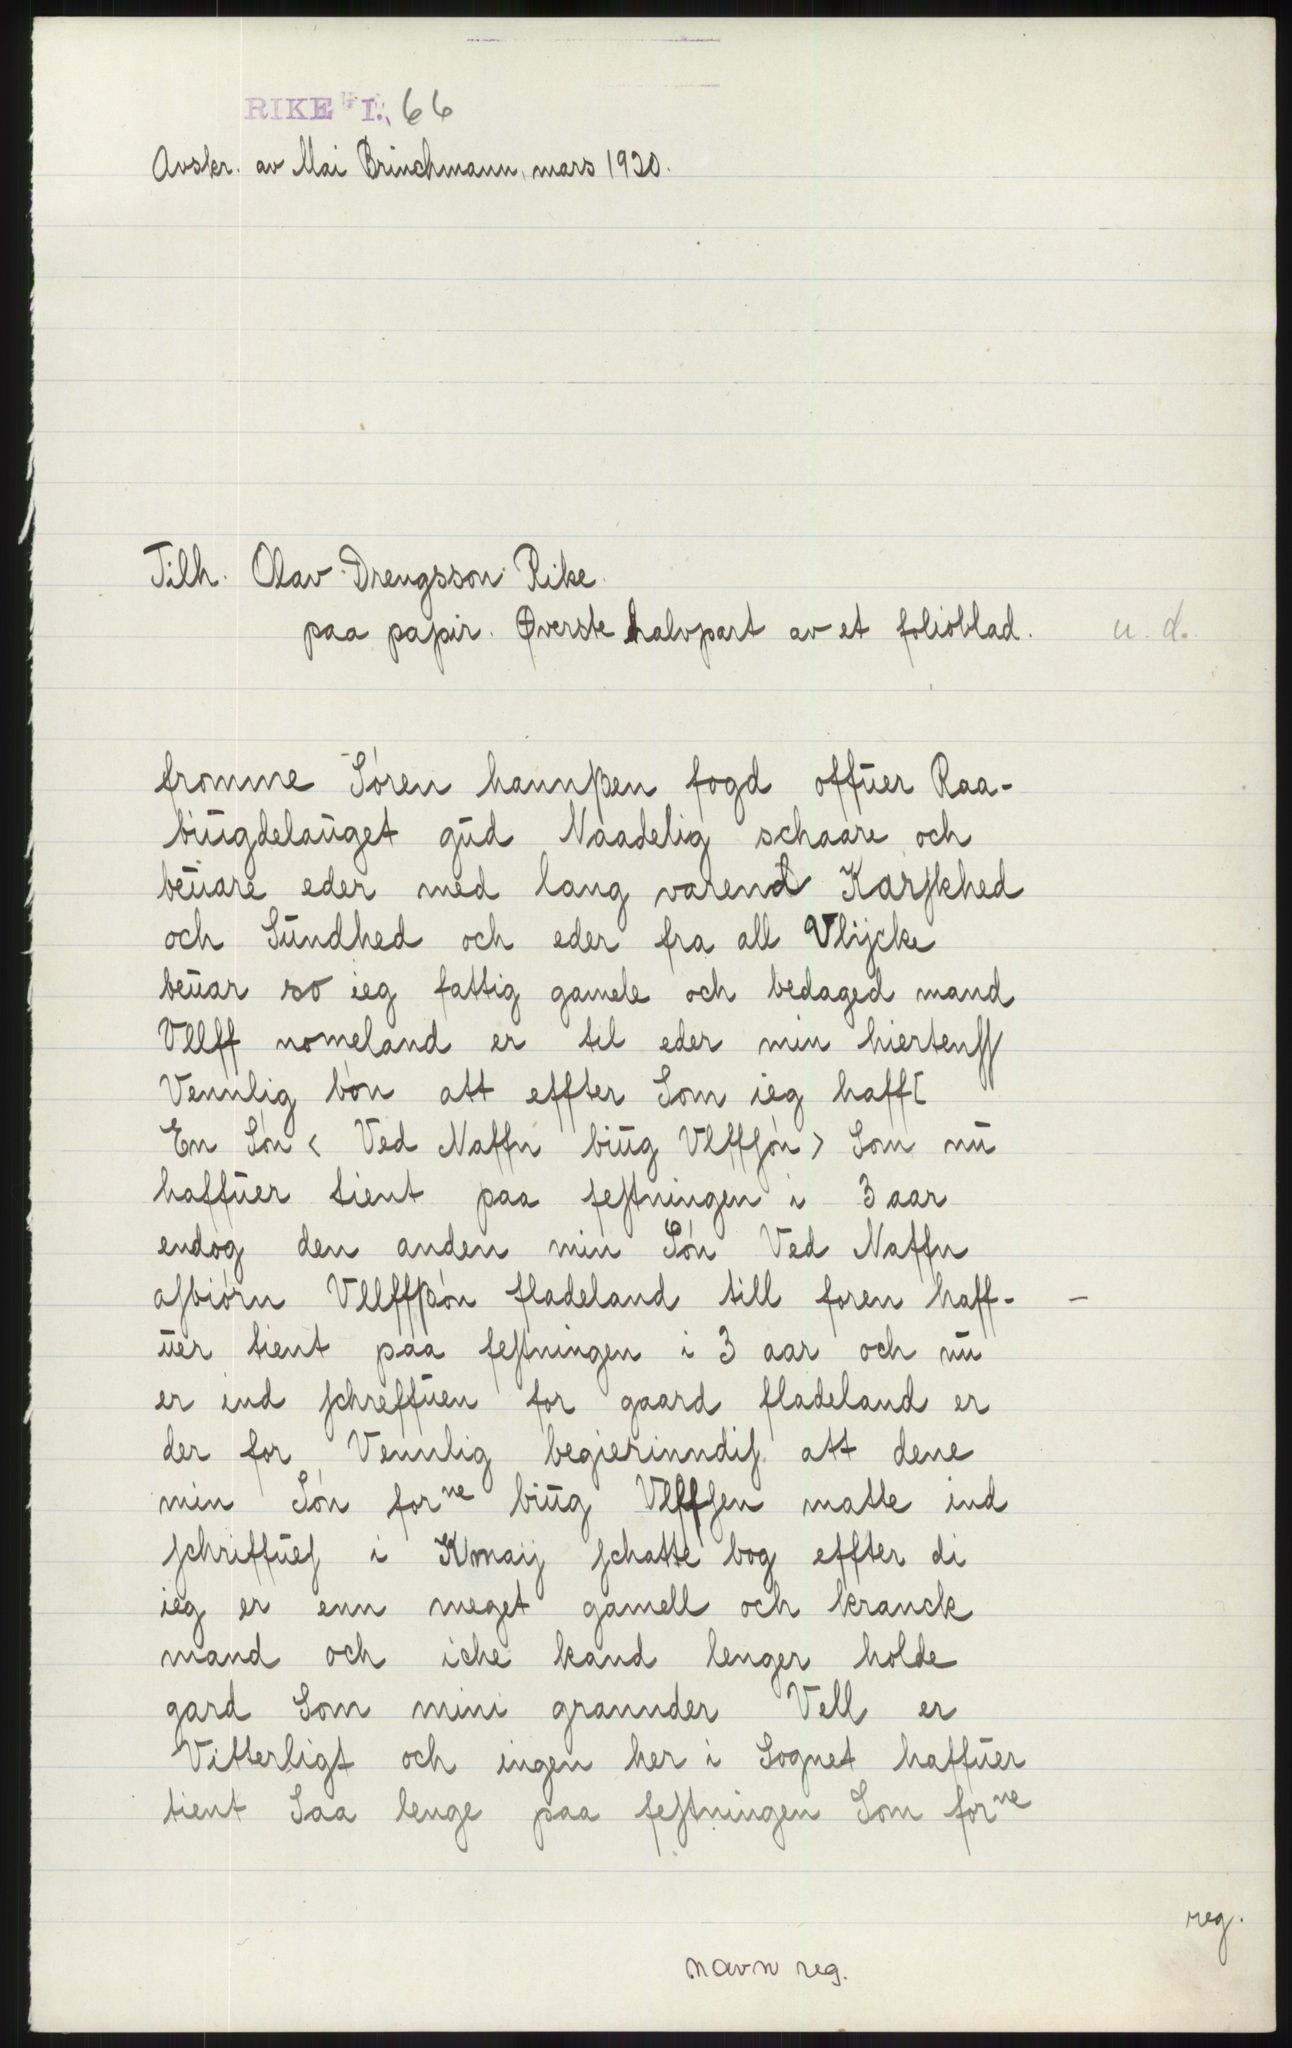 RIKE I. 66
Avskr. av Mai Brinchmann, mars 1920.
Tilh. Olav Drengsson Rike.
paa papir. Øverste halvpart av et folioblad. u. d.
fromme Sóren hannßen fogd offūer Raa-
biūgdelaūget gūd Naadelig schaare och
beūare eder med lang varend Karſkhed
och Sūndhed och eder fra all Vlijcke
beūar so ieg fattig gamele och bedaged mand
Vllff nomeland er til eder min hiertenſſ
Vennlig bón att effter Som ieg haff[
En Són < Ved Naffn biūg Vlffſón > Som nū
haffūer tient paa feſtningen i 3 aar
endog den anden min Són Ved Naffn
aſbiórn Vllffßón fladeland till foren haff- -
ūer tient paa feſtningen i 3 aar och nū
er ind ſchreffūen for gaard fladeland er
der for Vennlig begierinndiſ att dene
min Són forne biūg Vlffſen matte ind
ſchriffūeſ i Kmaij ſchatte bog effter di
ieg er enn meget gamell och kranck
mand och iche kand lenger holde
gard Som mini grannder Vell er
Vitterligt och ingen her i Sognet haffūer
tient Saa lenge paa feſtningen Som forne
reg.
navn reg.